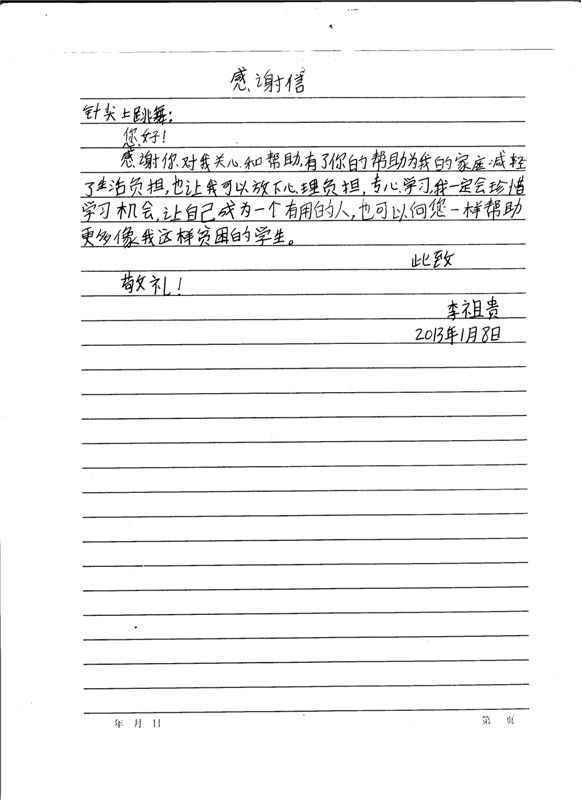 感谢信
针尖上跳舞：
您好！
感谢你对我关心和帮助，有了你的帮助为我的家庭减轻
了生活负担，也让我可以放下心理负担，专心学习，我一定会珍惜
学习机会，让自己成为一个有用的人，也可以向您一样帮助
更多像我这样贫困的学生。
此致
敬礼！
李祖贵
2013年1月8日
年 月 日 第 页